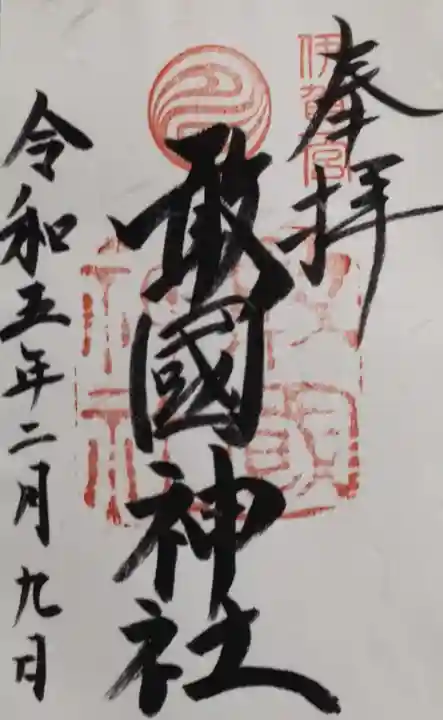 奉拝
伊賀一宮
敢國神社
令和五年二月九日